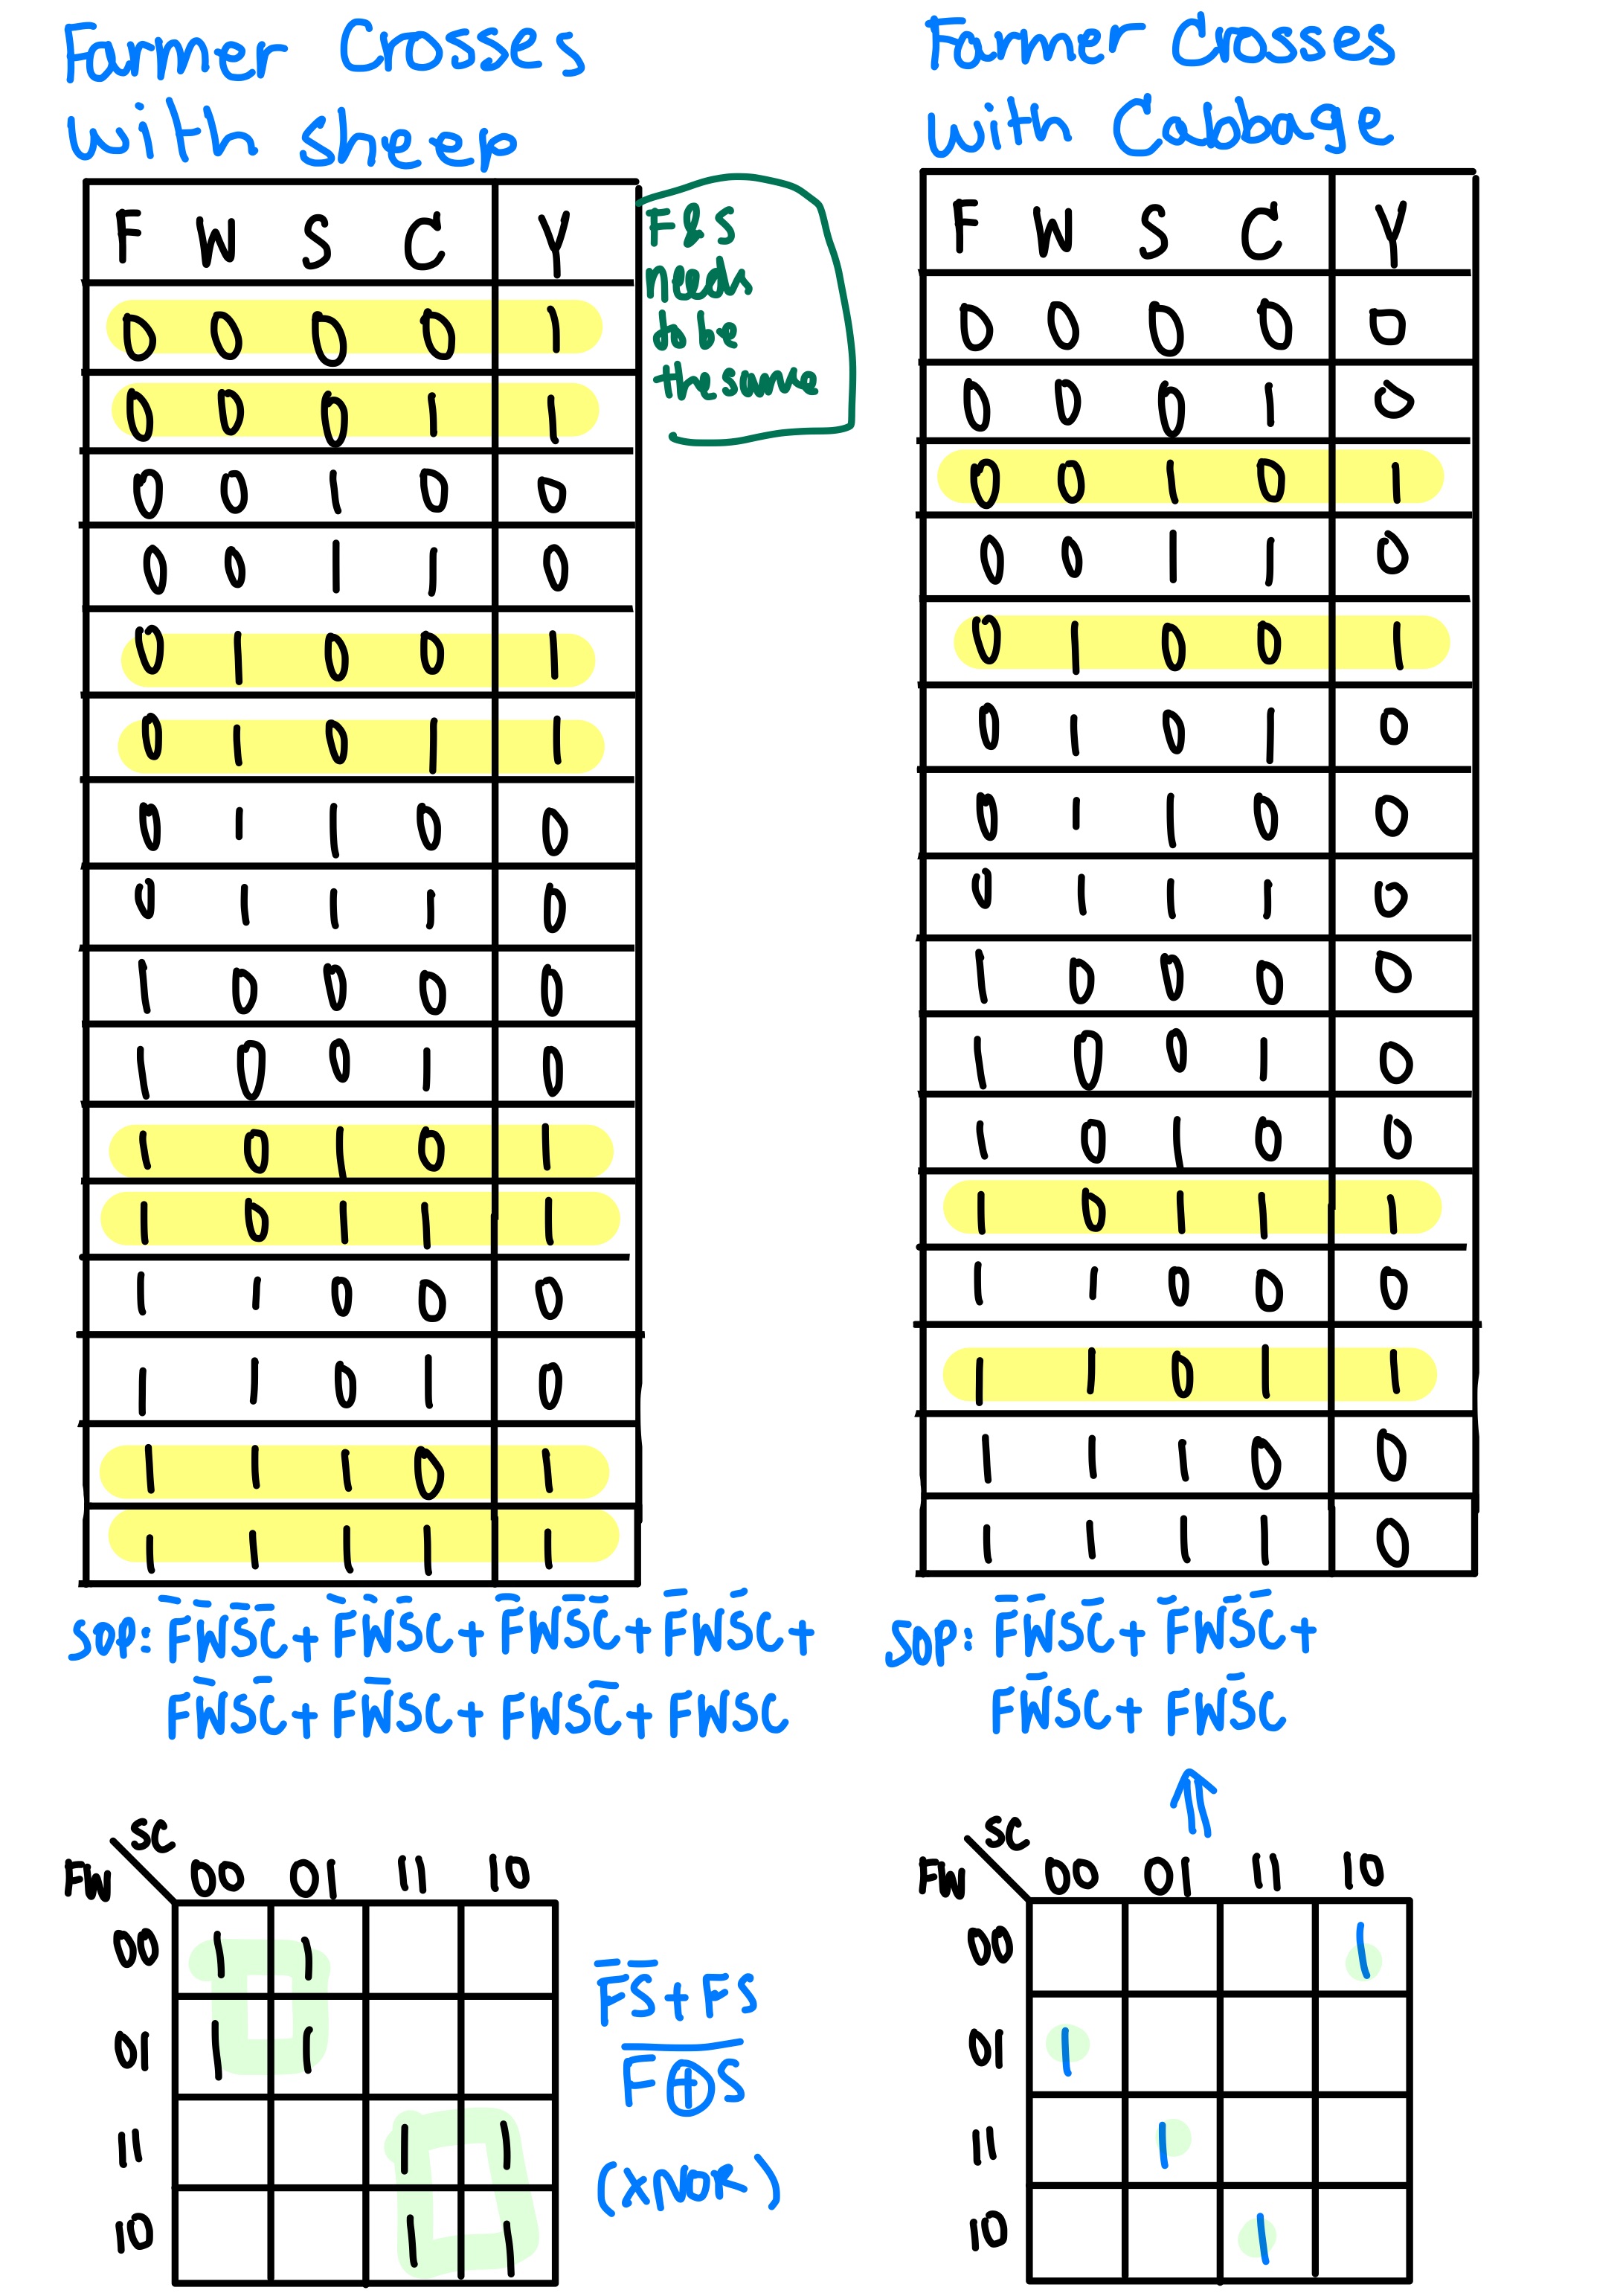 Farmer Crosses
with sheep
F W S C Y
0 0 0 0 1
0 0 0 1 1
0 0 1 0 0
0 0 1 1 0
0 1 0 0 1
0 1 0 1 1
0 1 1 0 0
0 1 1 1 0
1 0 0 0 0
1 0 0 1 0
1 0 1 0 1
1 0 1 1 1
1 1 0 0 0
1 1 0 1 0
1 1 1 0 1
1 1 1 1 1
F&S
needs
to be
the same
SOP: F̅W̅S̅C̅ + F̅W̅S̅C + F̅WS̅C̅ + F̅WS̅C +
FW̅SC̅ + FW̅SC + FWSC̅ + FWSC
SC
FW 00 01 11 10
00 1 1
01 1 1
11 1 1
10 1 1
F̅S̅ + FS
F̅⊕̅S̅
(XNOR)
Farmer Crosses
with Cabbage
F W S C Y
0 0 0 0 0
0 0 0 1 0
0 0 1 0 1
0 0 1 1 0
0 1 0 0 1
0 1 0 1 0
0 1 1 0 0
0 1 1 1 0
1 0 0 0 0
1 0 0 1 0
1 0 1 0 0
1 0 1 1 1
1 1 0 0 0
1 1 0 1 1
1 1 1 0 0
1 1 1 1 0
SOP: F̅W̅SC̅ + F̅WS̅C̅ +
FW̅SC + FWS̅C
SC
FW 00 01 11 10
00 1
01 1
11 1
10 1